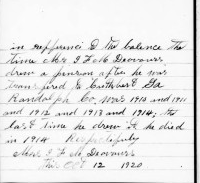 in refference to the balence the
time Mrs J F M Deovours
drew a pension after he was
transfered to Cuthbert Ga
Randolph Co. was 1910 and 1911
and 1912 and 1913 and 1914, the
last time he drew it he died
in 1914 Respectfully
Mrs J F M Deovours
This Oct 12 1920